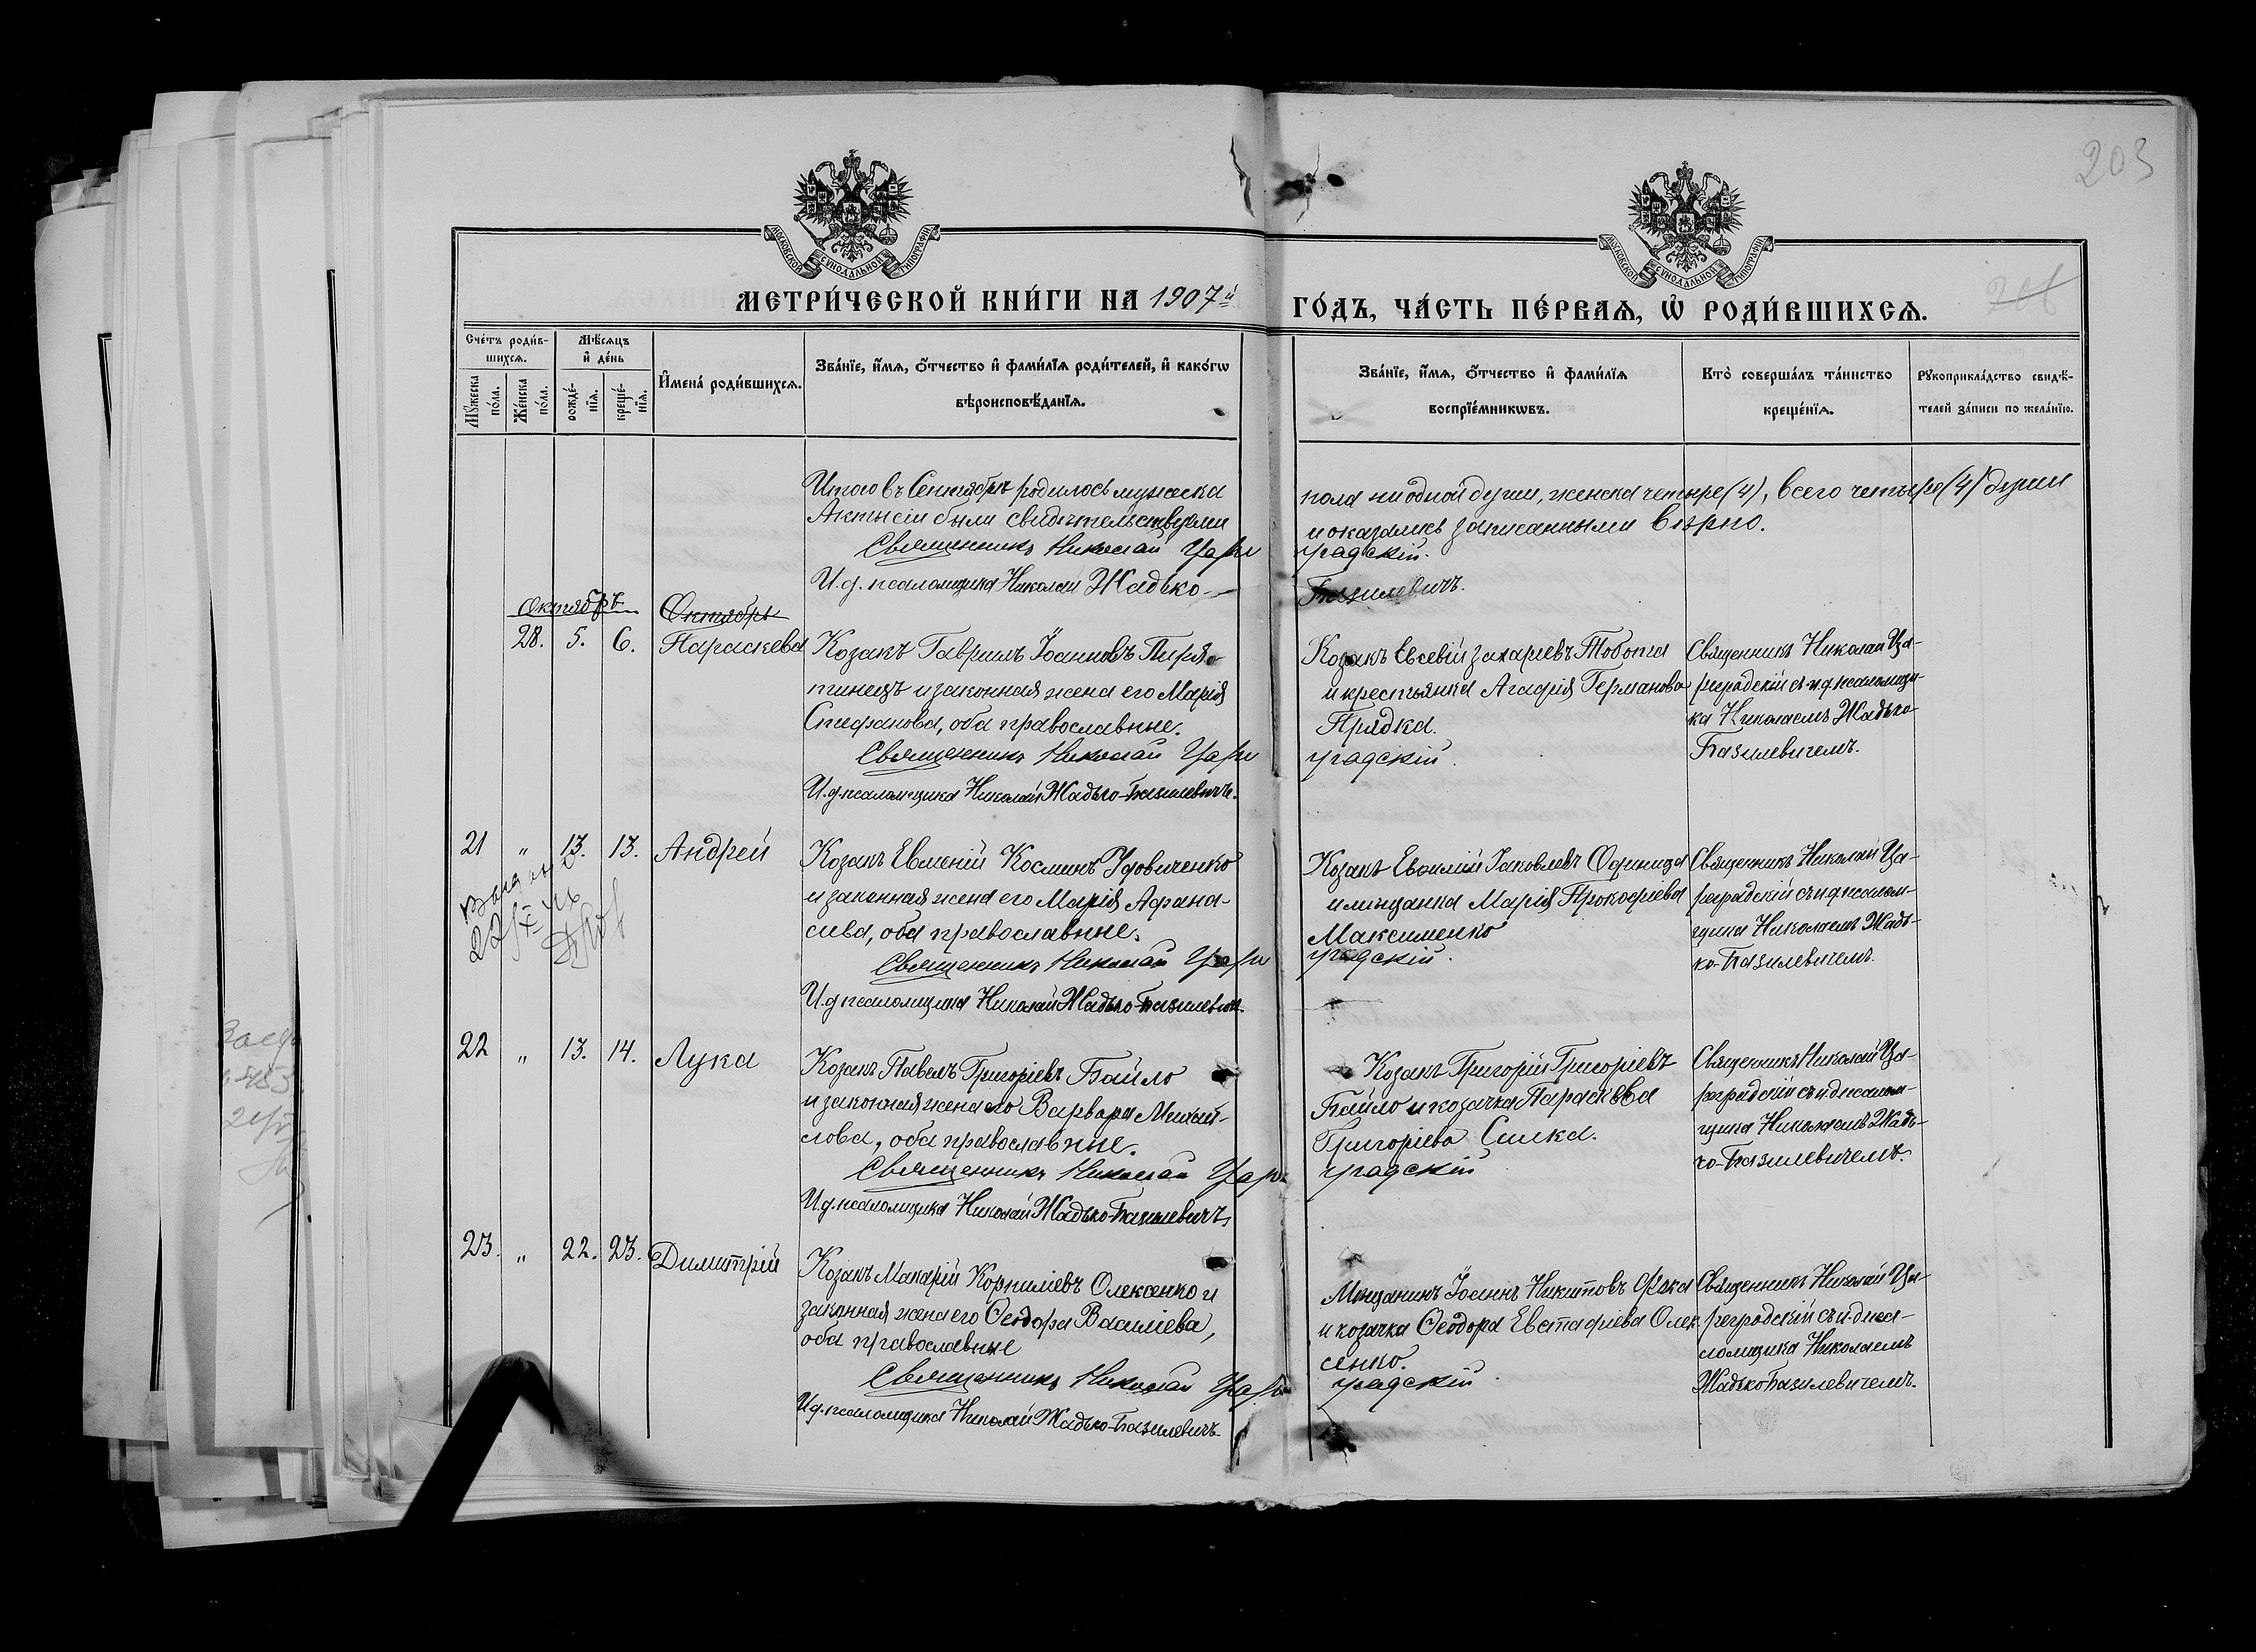 203
МОСКОВСКОЙ СѴНОДАЛЬНОЙ ТИПОГРАФІИ
МОСКОВСКОЙ СѴНОДАЛЬНОЙ ТИПОГРАФІИ
МЕТРИ́ЧЕСКОЙ КНИ́ГИ НА 1907й ГО́ДЪ, ЧА́СТЬ ПЕ́РВАѦ, Ѡ҆ РОДИ́ВШИХСѦ.
Сче́тъ роди́в-
шихсѧ.
Мꙋ́жеска
по́ла.
Же́нска
по́ла.
Мѣ́сѧцъ
и҆ де́нь
рожде́-
нїѧ.
креще́-
нїѧ.
И҆мена̀ роди́вшихсѧ.
Зва́нїе, и҆́мѧ, ѻ҆́тчество и҆ фами́лїѧ роди́телей, и҆ како́гѡ
вѣроисповѣ́данїѧ.
Зва́нїе, и҆́мѧ, ѻ҆́тчество и҆ фами́лїѧ
воспрїе́мникѡвъ.
Кто̀ соверша́лъ та́инство
креще́нїѧ.
Рꙋкоприкла́дство свидѣ́-
телей за́писи по жела́нїю.
Итого въ Сентябрѣ родилось мужеска пола ни одной души, женска четыре (4), всего четыре (4) души
Акты сіи были свидѣтельствуемы и оказались записанными вѣрно.
Священникъ Николай Царе градскій.
И.д. псаломщика Николай Жадько- Базилевичъ.
Октябрь
Октябрь
28. 5. 6. Параскева
Козакъ Гавриилъ Іоанновъ Пиря-
тинецъ и законная жена его Марія
Стефанова, оба православные.
Священникъ Николай Царе градскій.
И.д. псаломщика Николай Жадько-Базилевичъ.
Козакъ Евсевій Захаріевъ
и крестьянка Агафія Германова
Прядка.
Священникъ Николай Ца-
реградскій съ и.д. псаломщи-
ка Николаемъ Жадько
Базилевичемъ.
21 " 13. 13. Андрей
Козакъ Евменій Косминъ Удовиченко
и законная жена его Марія Афана-
сиева, оба православные.
Священникъ Николай Царе градскій.
И.д. псаломщика Николай Жадько-Базилевичъ.
Козакъ Іаковлевъ
и мѣщанка Марія Прокофіева
Максименко
Священникъ Николай Ца-
реградскій съ и.д. псалом-
щика Николаемъ Жадь-
ко-Базилевичемъ.
22 " 13. 14. Лука
Козакъ Павелъ Григоріевъ Байло
и законная жена его Варвара Михай-
лова, оба православные.
Священникъ Николай Царе градскій
И.д. псаломщика Николай Жадько-Базилевичъ
Козакъ Григорій Григоріевъ
Байло и козачка Параскева
Григоріева Силка.
Священникъ Николай Ца-
реградскій съ и.д. псалом-
щика Николаемъ Жадь-
ко-Базилевичемъ.
23. " 22. 23. Димитрій
Козакъ Макарій Корниліевъ Олексенко и
законная жена его Ѳеодора Василіева,
оба православные
Священникъ Николай Царе градскій
И.д. псаломщика Николай Жадько-Базилевичъ
Мѣщанинъ Іоаннъ Никитовъ
и козачка Ѳеодора Евстафіева Олек
сенко.
Священникъ Николай Ца-
реградскій съ и.д. пса-
ломщика Николаемъ
Жадько Базилевичемъ.